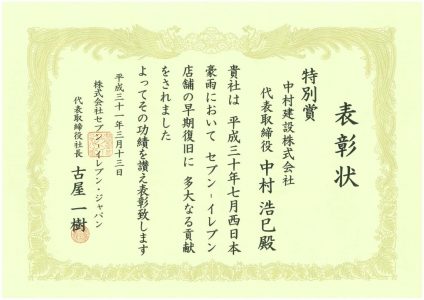 表彰状
特別賞
中村建設株式会社
代表取締役 中村 浩巳 殿
貴社は 平成三十年七月西日本
豪雨において セブン-イレブン
店舗の早期復旧に 多大なる貢献
をされました
よってその功績を讃え表彰致します
平成三十一年三月十三日
株式会社セブン-イレブン・ジャパン
代表取締役社長 古屋 一樹